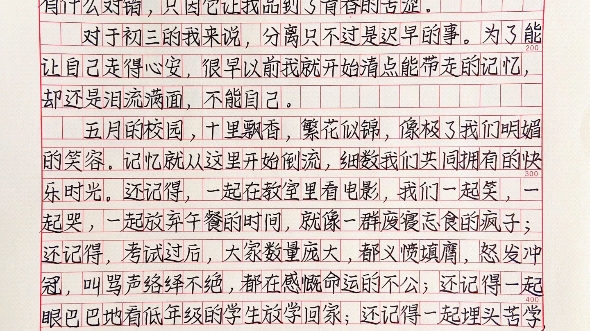 有什么对错，只因它让我品到了青春的苦涩。
对于初三的我来说，分离只不过是迟早的事。为了能
200
让自己走得心安，很早以前我就开始清点能带走的记忆，
却还是泪流满面，不能自己。
五月的校园，十里飘香，繁花似锦，像极了我们明媚
的笑容。记忆就从这里开始倒流，细数我们共同拥有的快
300
乐时光。还记得，一起在教室里看电影，我们一起笑，一
起哭，一起放弃午餐的时间，就像一群废寝忘食的疯子；
还记得，考试过后，大家数量庞大，都义愤填膺，怒发冲
冠，叫骂声络绎不绝，都在感慨命运的不公；还记得一起
400
眼巴巴地看低年级的学生放学回家；还记得一起埋头苦学